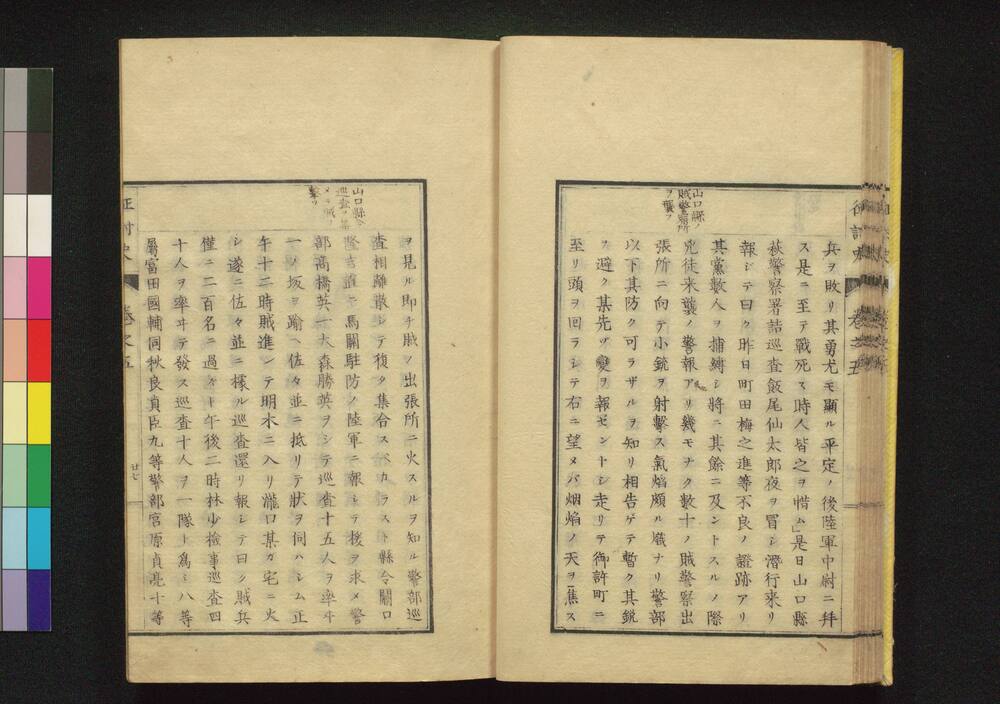 山口縣ノ
賊警察所
ヲ襲フ
兵ヲ敗リ其勇尤モ顯ル平定ノ後陸軍中尉ニ拜
ス是ニ至テ戰死ス時人皆之ヲ惜ム」是日山口縣
萩警察署詰巡查飯尾仙太郎夜ヲ冒シ潛行來リ
報シテ曰ク昨日町田梅之進等不良ノ證跡アリ
其黨數人ヲ捕縛シ將ニ其餘ニ及ントスルノ際
兇徒来襲ノ警報アリ幾モナク數十ノ賊警察出
張所ニ向テ小銃ヲ射擊ス氣焰頗ル熾ナリ警部
以下其防ク可ラザルヲ知リ相告ゲテ暫ク其鋭
ヲ避ク某先ヅ變ヲ報ゼントシ走リテ御許町ニ
至リ頭ヲ回ラシテ右ニ望メバ烟焰ノ天ヲ焦ス
征討史
卷之五
山口縣令
巡查ヲ
メテ賊ヲ
擊ツ
ヲ見ル即チ賊ノ出張所ニ火スルヲ知ル警部巡
查相離散シテ復タ集合スベカラスト縣令關口
隆吉直チ馬關駐防ノ陸軍ニ報シテ援ヲ求メ警
部高橋英一大森勝英ヲシテ巡查十五人ヲ率ヰ
一ノ坂ヲ踰ヘ佐々並ニ抵リテ狀ヲ伺ハシム正
午十二時賊進ンテ明木ニ入リ瀧口某カ宅ニ火
シ遂ニ佐々並ニ據ル巡查還リ報シテ曰ク賊兵
僅ニ二百名ニ過スト午後二時林少檢事巡查四
十人ヲ率ヰテ發ス巡查十人ヲ一隊ト爲シ八等
屬富田國輔同秋良貞臣九等警部宮原貞亮十等
征討史
卷之五
廿七